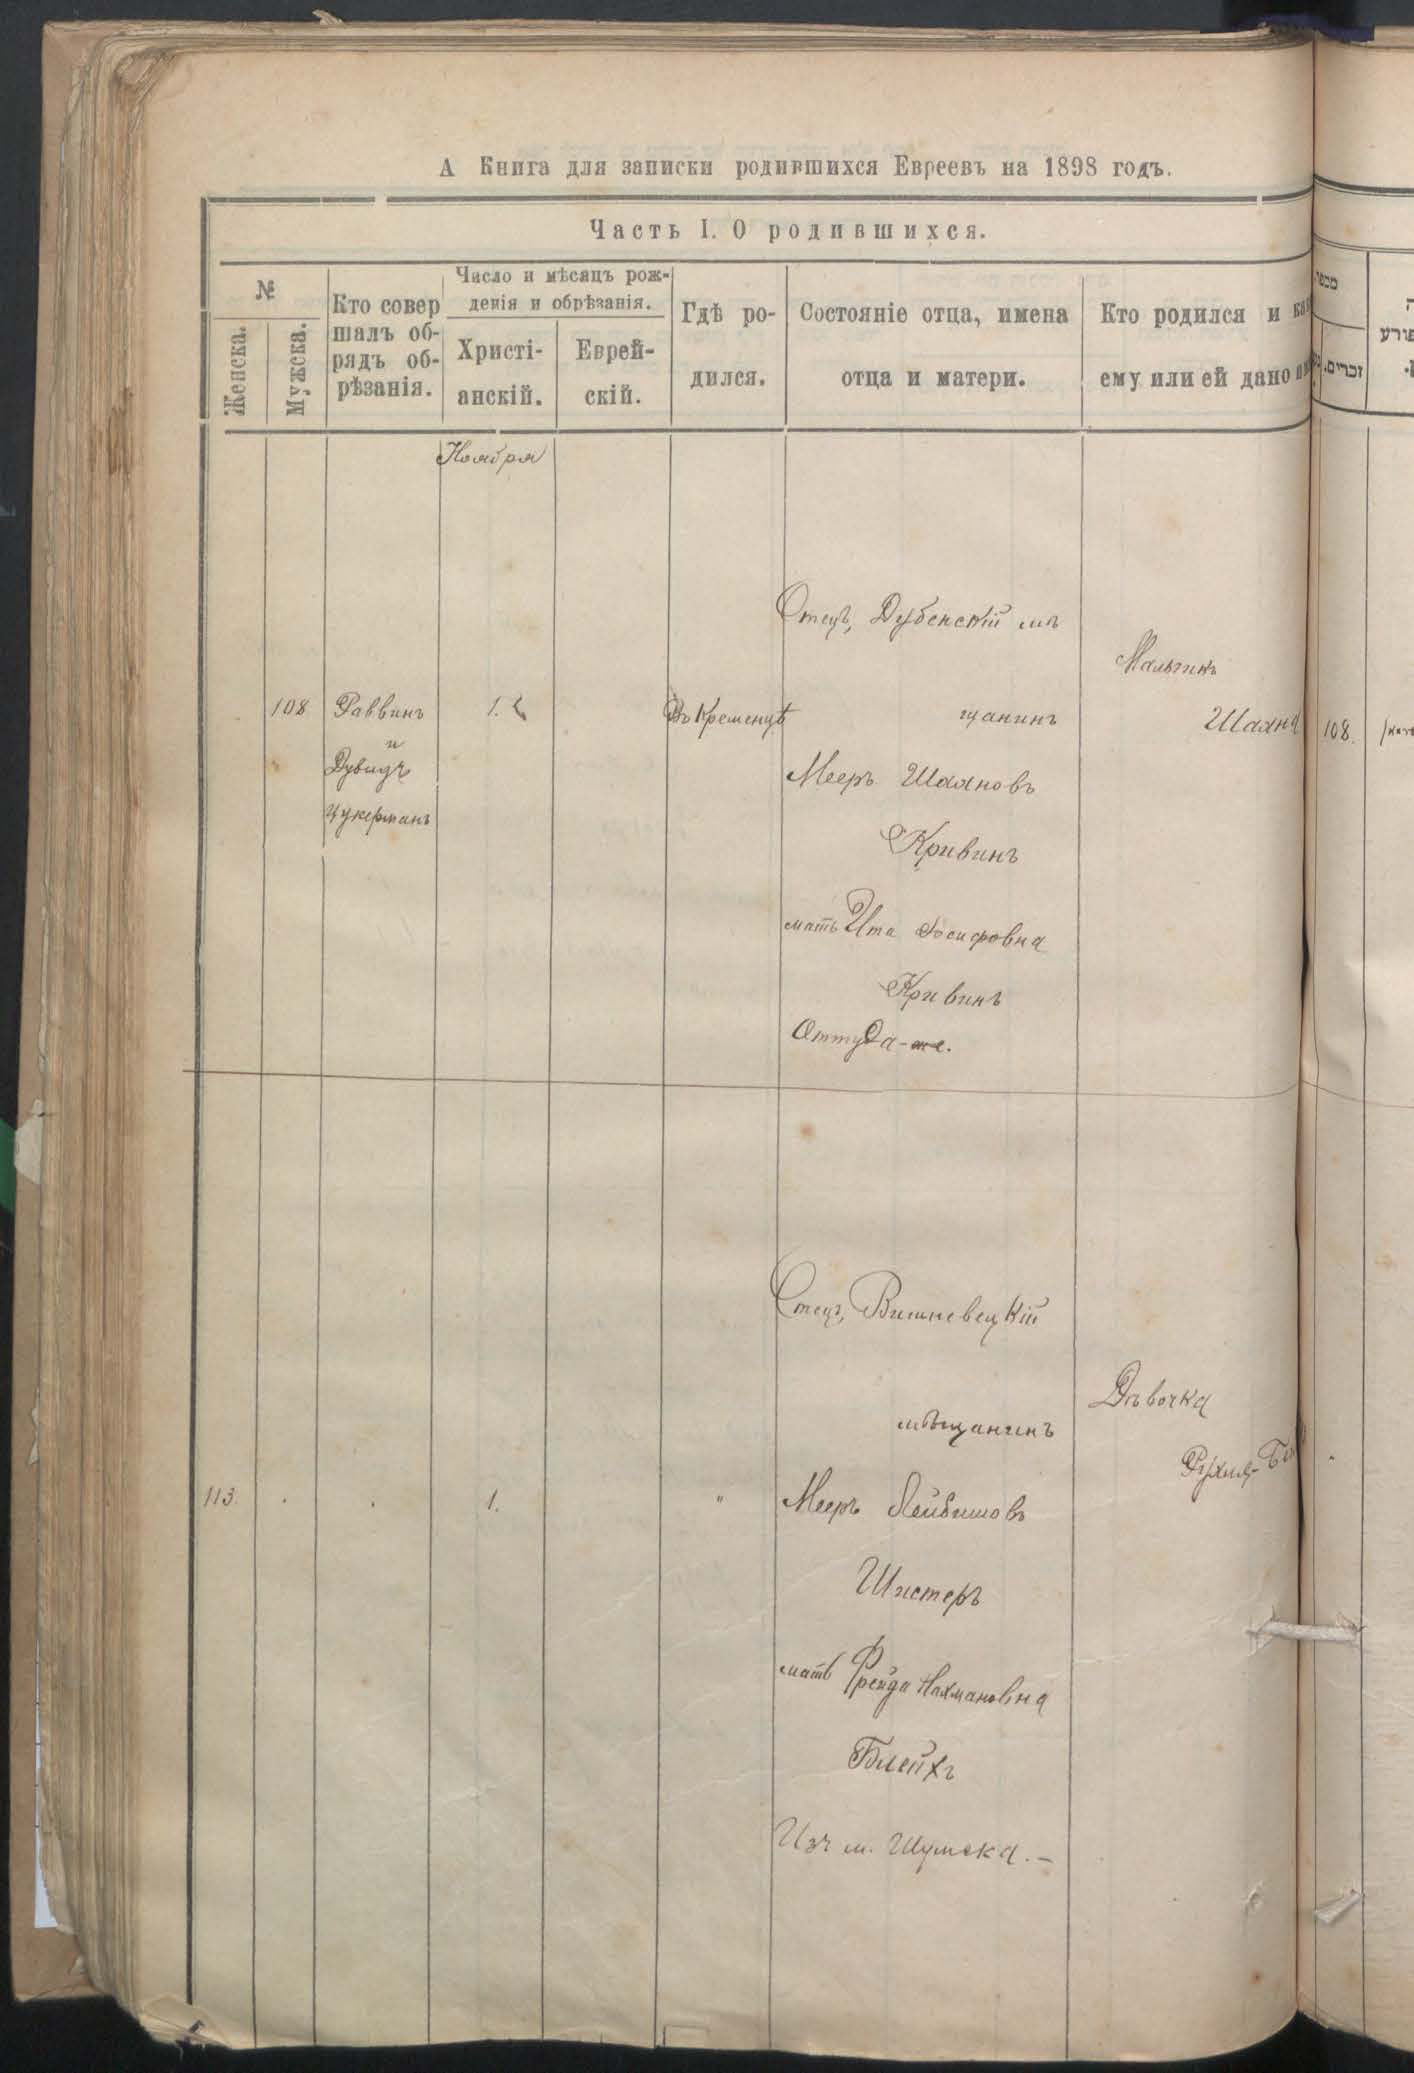 А Книга для записки родившихся Евреевъ на 1898 годъ.
Часть I. О родившихся.
№
Женска.
Мужска.
Кто совер
шалъ об-
рядъ об-
рѣзанія.
Число и мѣсяцъ рож-
денія и обрѣзанія.
Христі-
анскій.
Еврей-
скій.
Гдѣ ро-
дился.
Состояніе отца, имена
отца и матери.
Кто родился и
ему или ей дано
זכרים.
Ноября
108
Раввинъ
и
Дувидъ
Цукерманъ
1.
Въ Кременцѣ
Отецъ, Дубенскій мѣ
щанинъ
Мееръ Шахновъ
Кривинъ
мать Ита Іосифовна
Кривинъ
Оттуда-же.
Мальчикъ
Шахна
108.
113.
1.
"
Отецъ, Вишневецкій
мѣщанинъ
Мееръ Лейбишовъ
Шистеръ
мать Фрейда Нахмановна
Блейхъ
Изъ м. Шумска.-
Дѣвочка
Рухля-